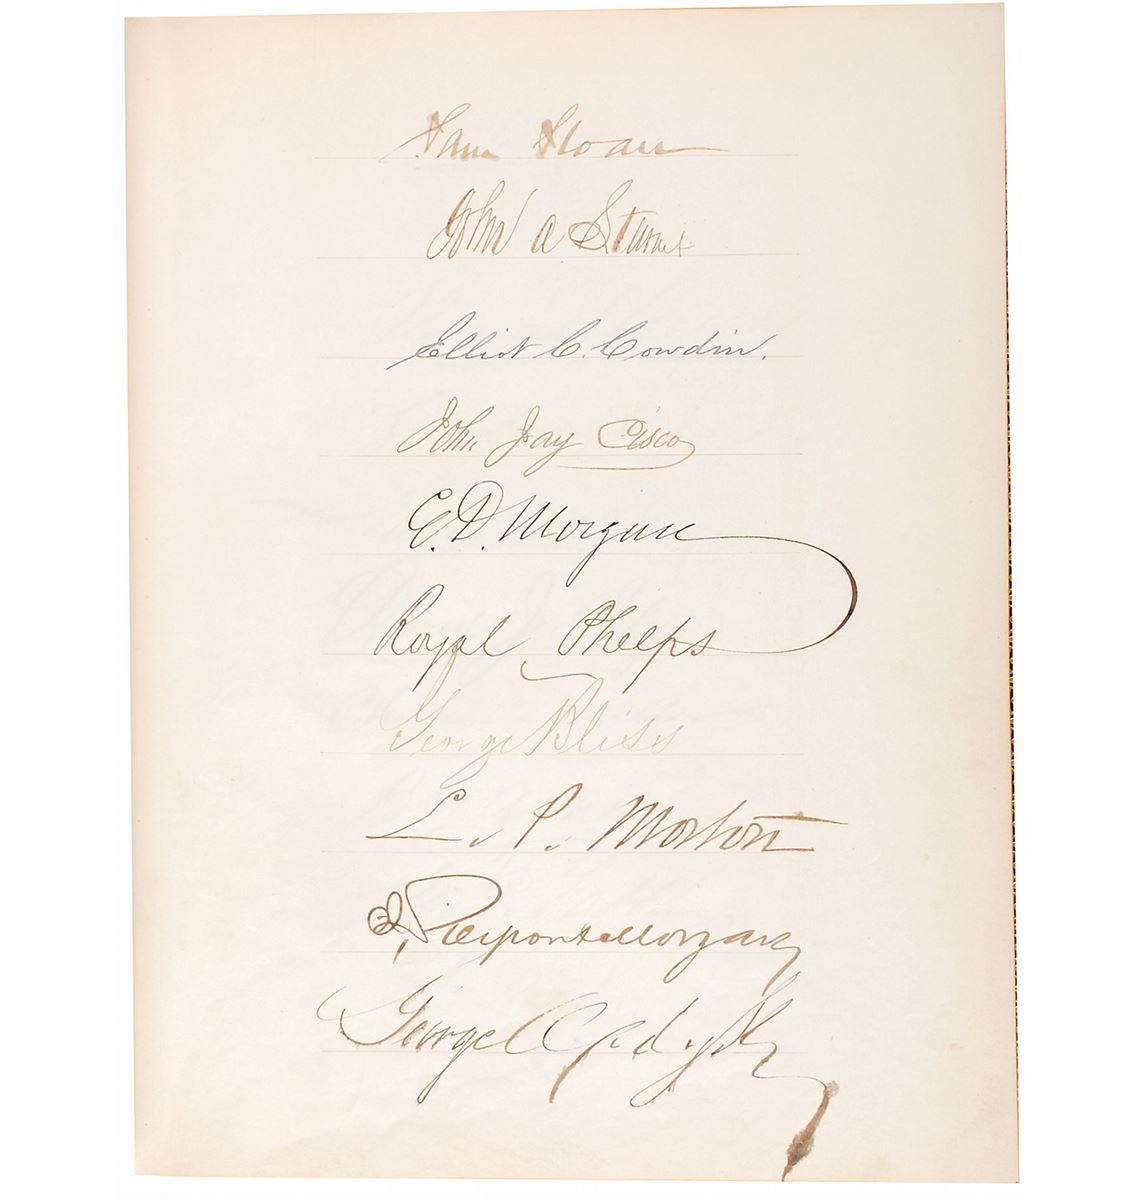 Sam Sloan
John A Stewart
Elliot C. Cowdin.
John Jay Cisco
E. D. Morgan
Royal Phelps
George Bliss
L. P. Morton
J. Pierpont Morgan
George Opdyke